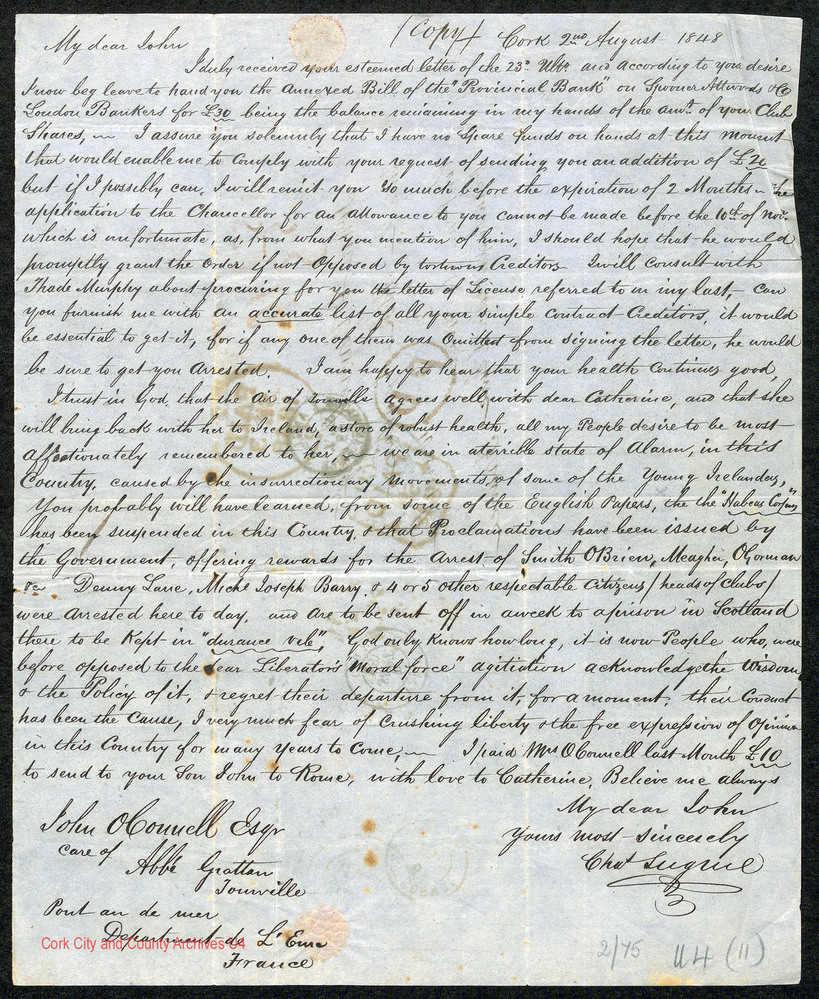 (Copy) Cork 2nd August 1848
My dear John
I duly received your esteemed letter of the 23d Ulto and according to your desire
I now beg leave to hand you the Annexed Bill of the "Provincial Bank" on Spooner Attwoods & Co
London Bankers for £30 being the balance remaining in my hands of the amt. of your Club
Shares, — I assure you solemnly that I have no spare funds on hands at this moment
that would enable me to comply with your request of sending you an addition of £20
but if I possibly can, I will remit you so much before the expiration of 2 Months — the
application to the Chancellor for an allowance to you cannot be made before the 10th of Novr.
which is unfortunate, as, from what you mention of him, I should hope that he would
promptly grant the order if not opposed by Creditors I will consult with
Thade Murphy about procuring for you the letter of License referred to in my last, Can
you furnish me with an accurate list of all your simple Contract Creditors, it would
be essential to get it, for if any one of them was omitted from signing the letter, he would
be sure to get you arrested I am happy to hear that your health continues good,
I trust in God that the air of agrees well with dear Catherine, and that she
will bring back with her to Ireland, a store of robust health, all my People desire to be most
affectionately remembered to her, — we are in a terrible state of Alarm, in this
Country, caused by the insurrectionary movements, of some of the Young Irelanders,
You probably will have learned, from some of the English Papers, the the "Habeas Corpus"
has been suspended in this Country, & that Proclamations have been issued by
the Government, offering rewards for the Arrest of Smith OBrien, Meagher, OGorman
&c Denny Lane, Michl Joseph Barry, & 4 or 5 other respectable Citizens / heads of Clubs /
were arrested here to day, and are to be sent off in a week to a prison in Scotland
there to be Kept in "durance vile", God only Knows how long, it is now People who, were
before opposed to the dear Liberator's "Moral force" agitiation acknowledge the Wisdom
& the Policy of it, & regret their departure from it, for a moment, their Conduct
has been the Cause, I very much fear of Crushing liberty & the free expression of Opinion
in this Country for many Years to Come, — I paid Mrs OConnell last Month £10
to send to your Son John to Rome, with love to Catherine, Believe me always
My dear John
Yours most sincerely
Chas Sugrue
John OConnell Esqr
Care of
Abbé Grattan
Tourville
Pont au de mer
Department de L'Eure
France
Cork City and County Archives U4
2/75 U4 (11)